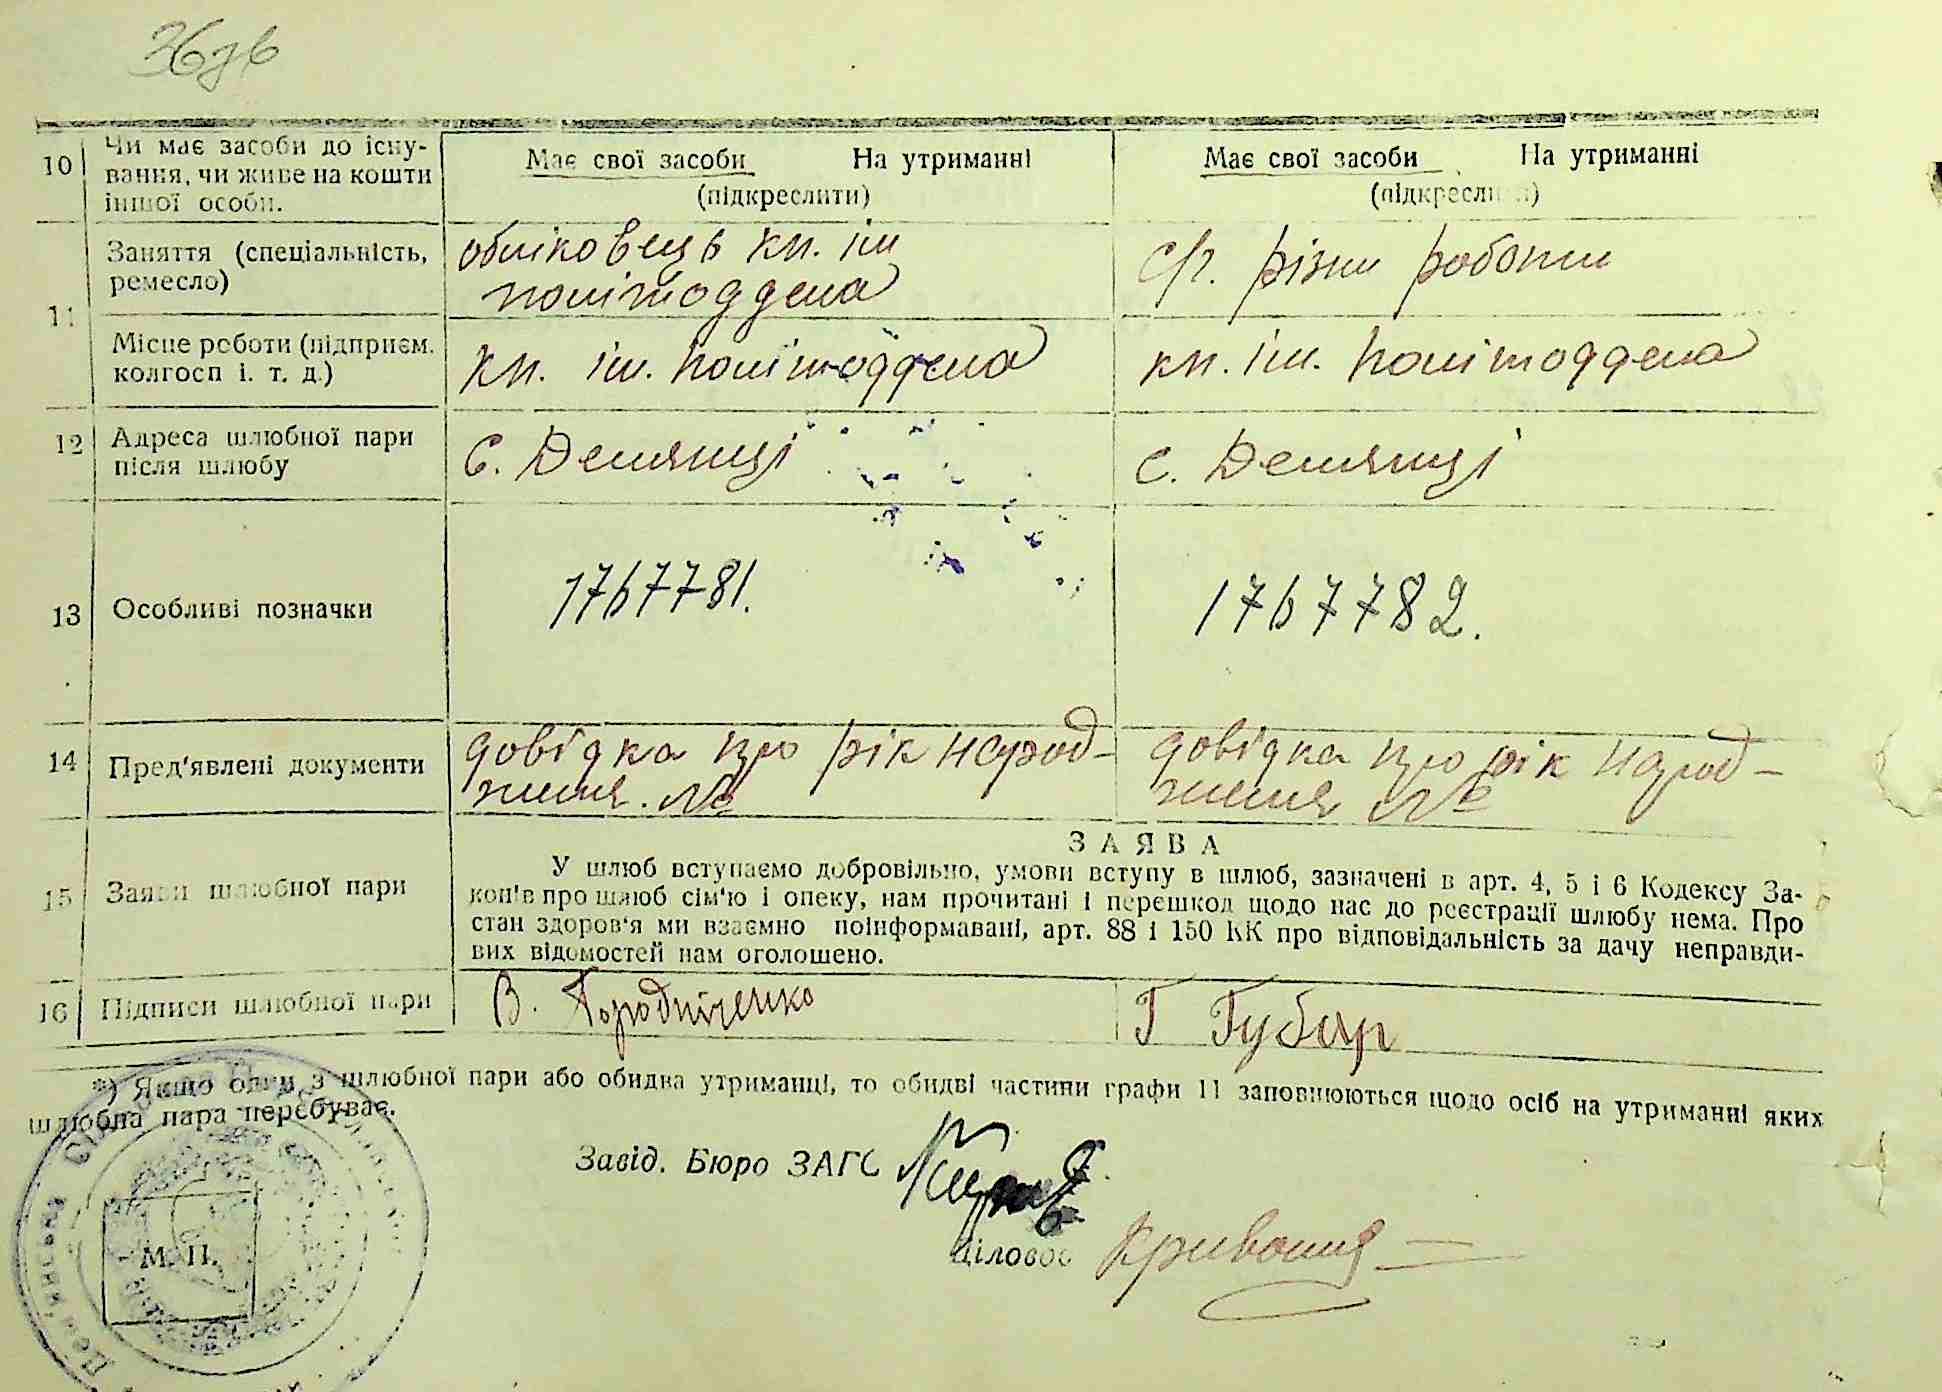 10 Чи має засоби до існу-
вання, чи живе на кошти
іншої особи.
Має свої засоби На утриманні
(підкреслити)
Має свої засоби На утриманні
(підкреслити)
11
Заняття (спеціальність,
ремесло)
обліковець кп. ім
політоддела
с/г. різни роботи
Місце роботи (підприєм.
колгосп і. т. д.)
кп. ім. Політоддела
кп. ім. Політоддела
12 Адреса шлюбної пари
після шлюбу
с. Демянці
с. Демянці
13 Особливі позначки
1767781.
1767782.
14 Пред'явлені документи
довідка про рік народ-
ження. №
довідка про рік народ-
ження №
15 Заяви шлюбної пари
ЗАЯВА
У шлюб вступаємо добровільно, умови вступу в шлюб, зазначені в арт. 4, 5 і 6 Кодексу За-
конів про шлюб сім'ю і опеку, нам прочитані і перешкод щодо нас до реєстрації шлюбу нема. Про
стан здоров'я ми взаємно поінформавані, арт. 88 і 150 КК про відповідальність за дачу неправди-
вих відомостей нам оголошено.
16 Підписи шлюбної пари
В. Городніченко
Г Губар
*) Якщо один з шлюбної пари або обидва утриманці, то обидві частини графи 11 заповнюються щодо осіб на утриманні яких
шлюбна пара перебуває.
Завід. Бюро ЗАГС
Діловод
М. П.